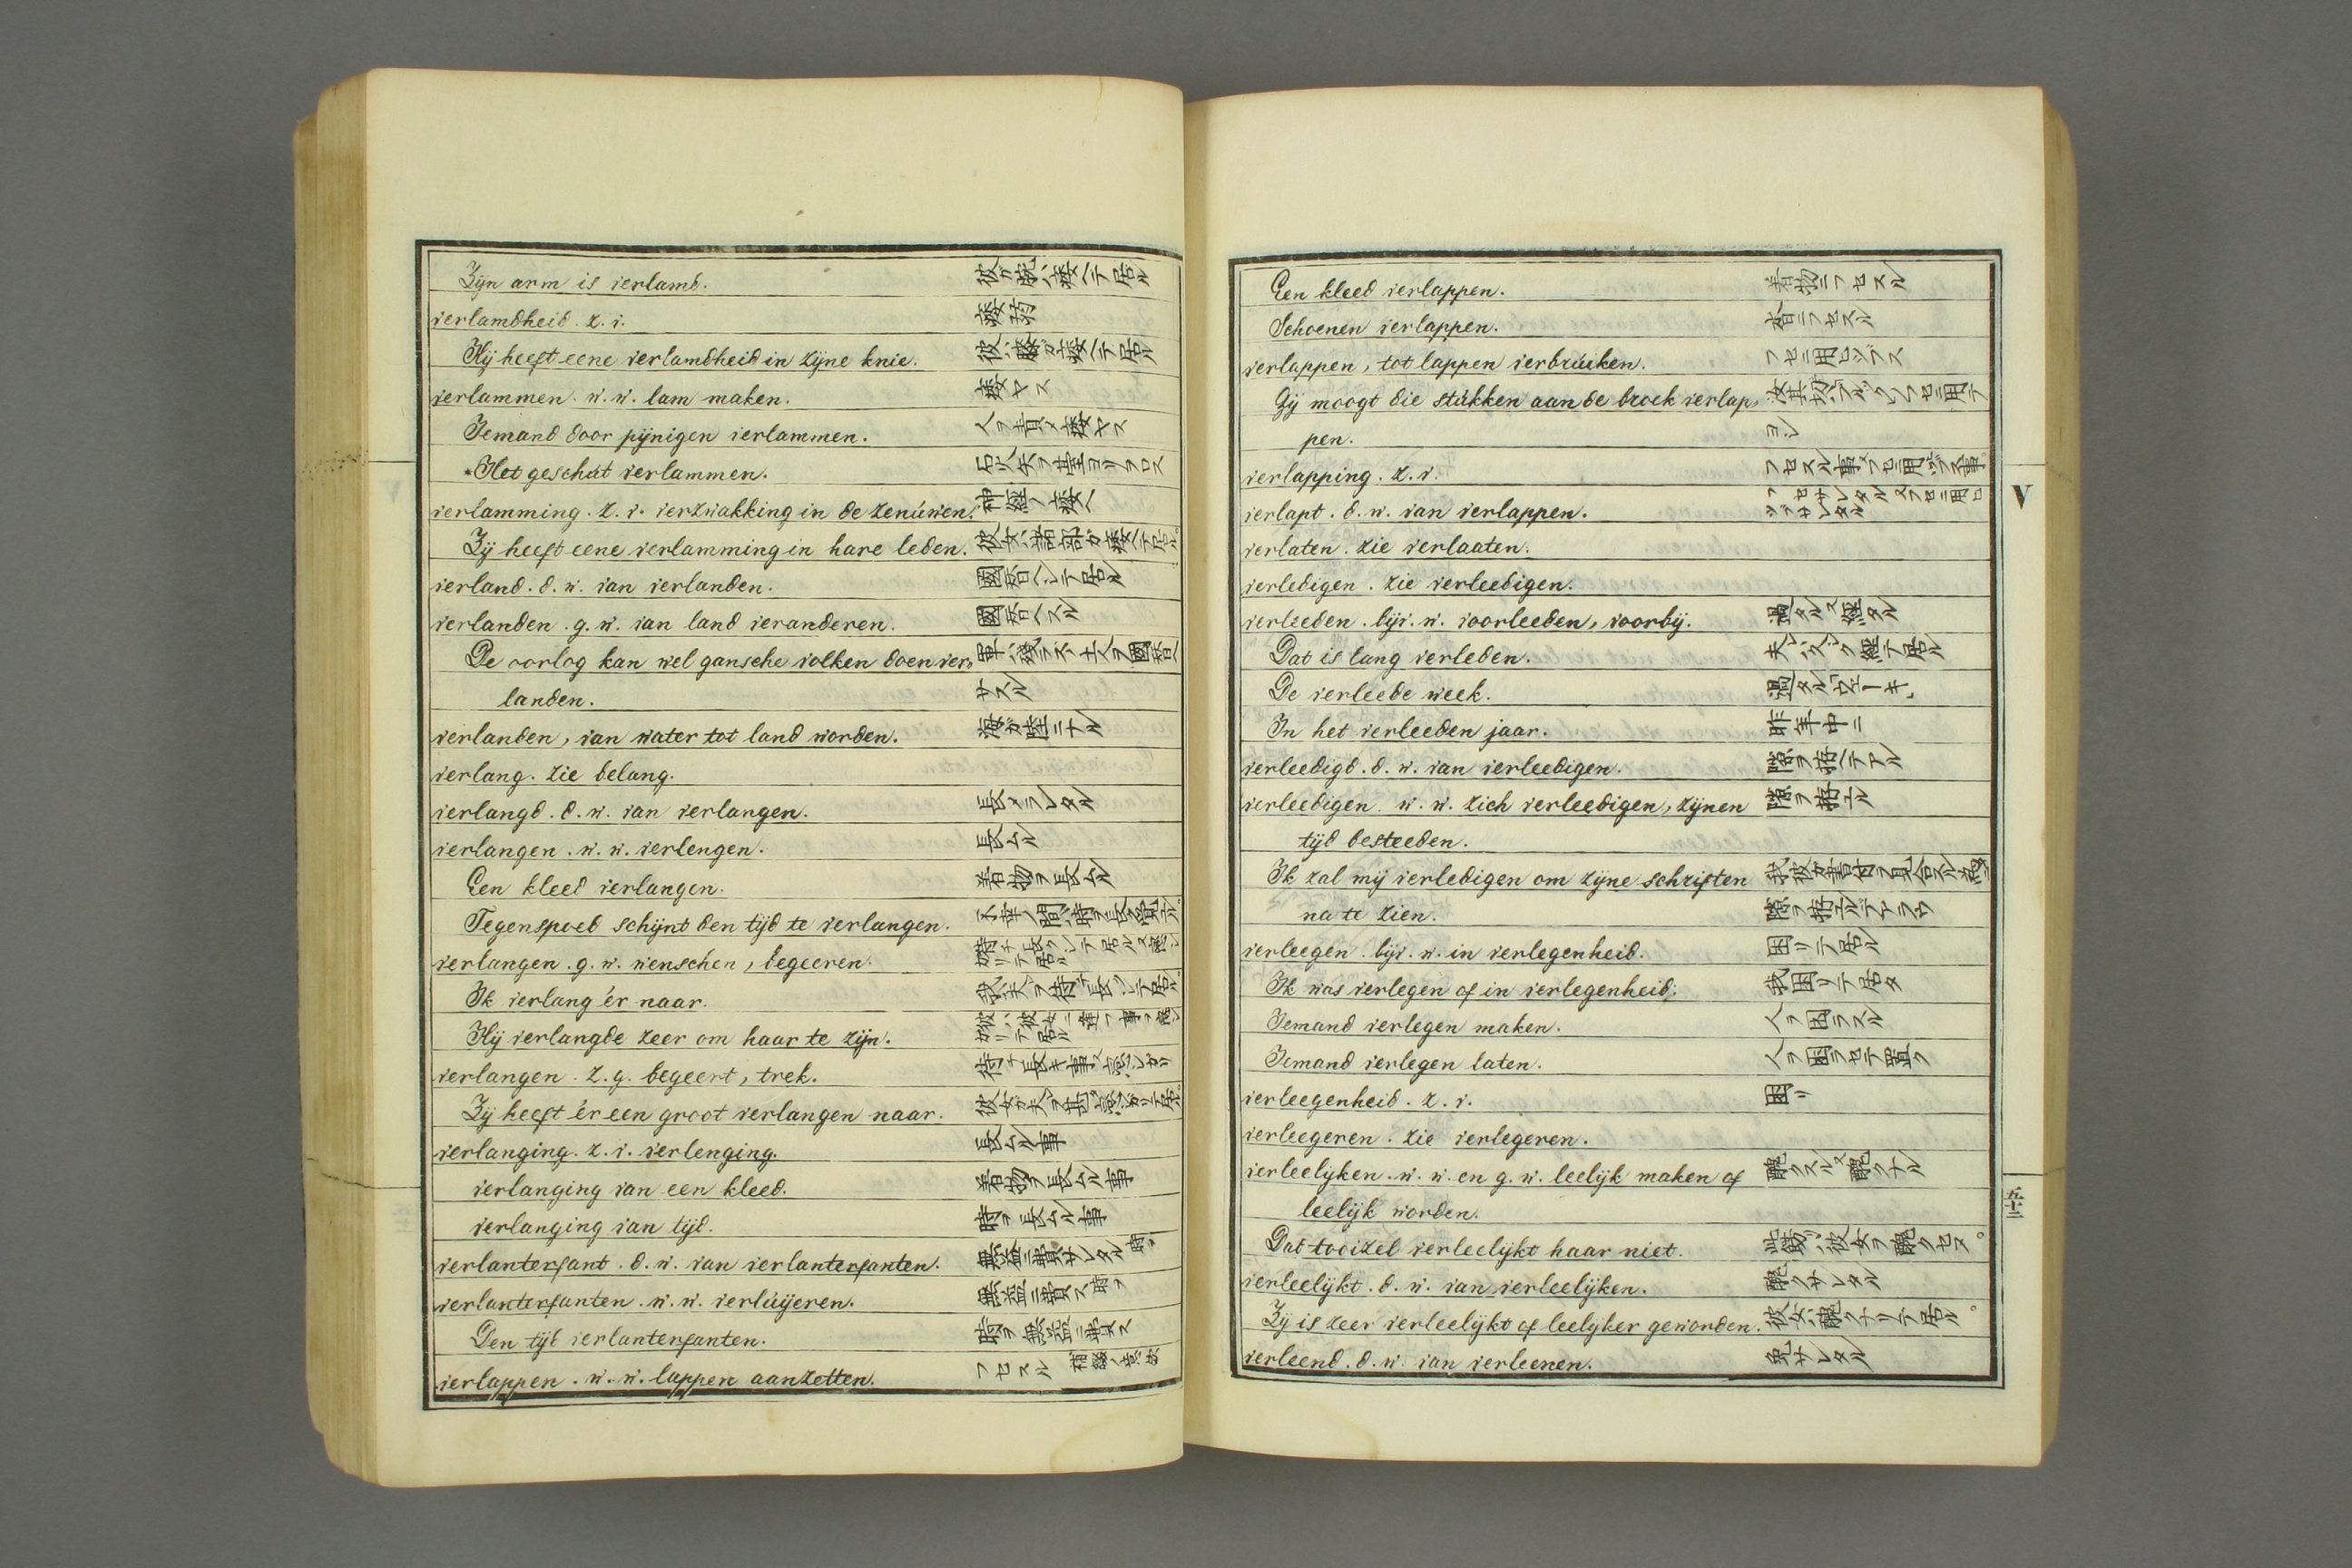 Zijn arm is verlamd. 彼ガ腕ハ痿ヘテ居ル
verlamdheid. z. v. 痿弱
Hij heeft eene verlamdheid in zijne knie. 彼ハ膝ガ痿ヘテ居ル
verlammen. w. w. lam maken. 痿ヤス
Iemand door pijnigen verlammen. 人ヲ責メ痿ヤス
*Het geschut verlammen. 石火矢ヲ臺ヨリヲロス
verlamming. z. v. verzwakking in de zenúwen. 神經ノ痿ヘ
Zij heeft eene verlamming in hare leden. 彼女ハ諸部ガ痿ヘテ居ル
verland. d. w. van verlanden. 國替ヘシテ居ル
verlanden. g. w. van land veranderen. 國替ヘスル
De oorlog kan wel gansche volken doen ver,
landen. サスル
verlanden, van water tot land worden. 海ガ陸ニナル
verlang. zie belang.
verlangd. d. w. van verlangen. 長メラレタル
verlangen. w. w. verlengen. 長ムル
Een kleed verlangen. 着物ヲ長ムル
Tegenspoed schijnt den tijd te verlangen.
verlangen. g. w. wenschen, begeeren.
Ik verlang ér naar.
Hij verlangde zeer om haar te zijn.
verlangen. z. g. begeert, trek.
Zij heeft ér een groot verlangen naar.
verlanging. z. v. verlenging. 長ムル事
verlanging van een kleed. 着物ヲ長ムル事
verlanging van tijd. 時ヲ長ムル事
verlanterfant. d. w. van verlanterfanten. 無益ニ費サレタル
verlanterfanten. w. w. verlúijeren. 無益ニ費ス
Den tijd verlanterfanten. 時ヲ無益ニ費ス
verlappen. w. w. lappen aanzetten. フセスル
Een kleed verlappen. 着物ニフセスル
Schoenen verlappen. 沓ニフセスル
verlappen, tot lappen verbrúiken.
Gij moogt die stúkken aan de broek verlap,
pen. ヨシ
verlapping. z. v.
verlapt. d. w. van verlappen.
verlaten. zie verlaaten.
verledigen. zie verleedigen.
verleeden. bijv. w. voorleeden, voorbij. 過タル又経タル
Dat is lang verleden.
De verleede week. 過タルウェーキ
In het verleeden jaar. 昨年中ニ
verleedigd. d. w. van verleedigen. 隙ヲ拵ヘテアル
verleedigen. w. w. zich verleedigen, zijnen 隙ヲ拵エル
tijd besteeden.
Ik zal mij verledigen om zijne schriften
na te zien. 隙ヲ拵エルデアラウ
verleegen. bijv. w. in verlegenheid. 困リテ居ル
Ik was verlegen of in verlegenheid. 我困リテ居タ
Iemand verlegen maken. 人ヲ困ラスル
Iemand verlegen laten. 人ヲ困ラセテ置ク
verleegenheid. z. v. 困リ
verleegeren. zie verlegeren.
verleelijken. w. w. en g. w. leelijk maken of 醜クスル又醜クナル
leelijk worden.
Dat tooizel verleelijkt haar niet. 此錺ハ彼女ヲ醜クセヌ。
verleelijkt. d. w. van verleelijken. 醜クサレタル
Zij is zeer verleelijkt of leelijker geworden. 彼女ハ醜クナリテ居ル。
verleend. d. w. van verleenen. 免サレタル
V